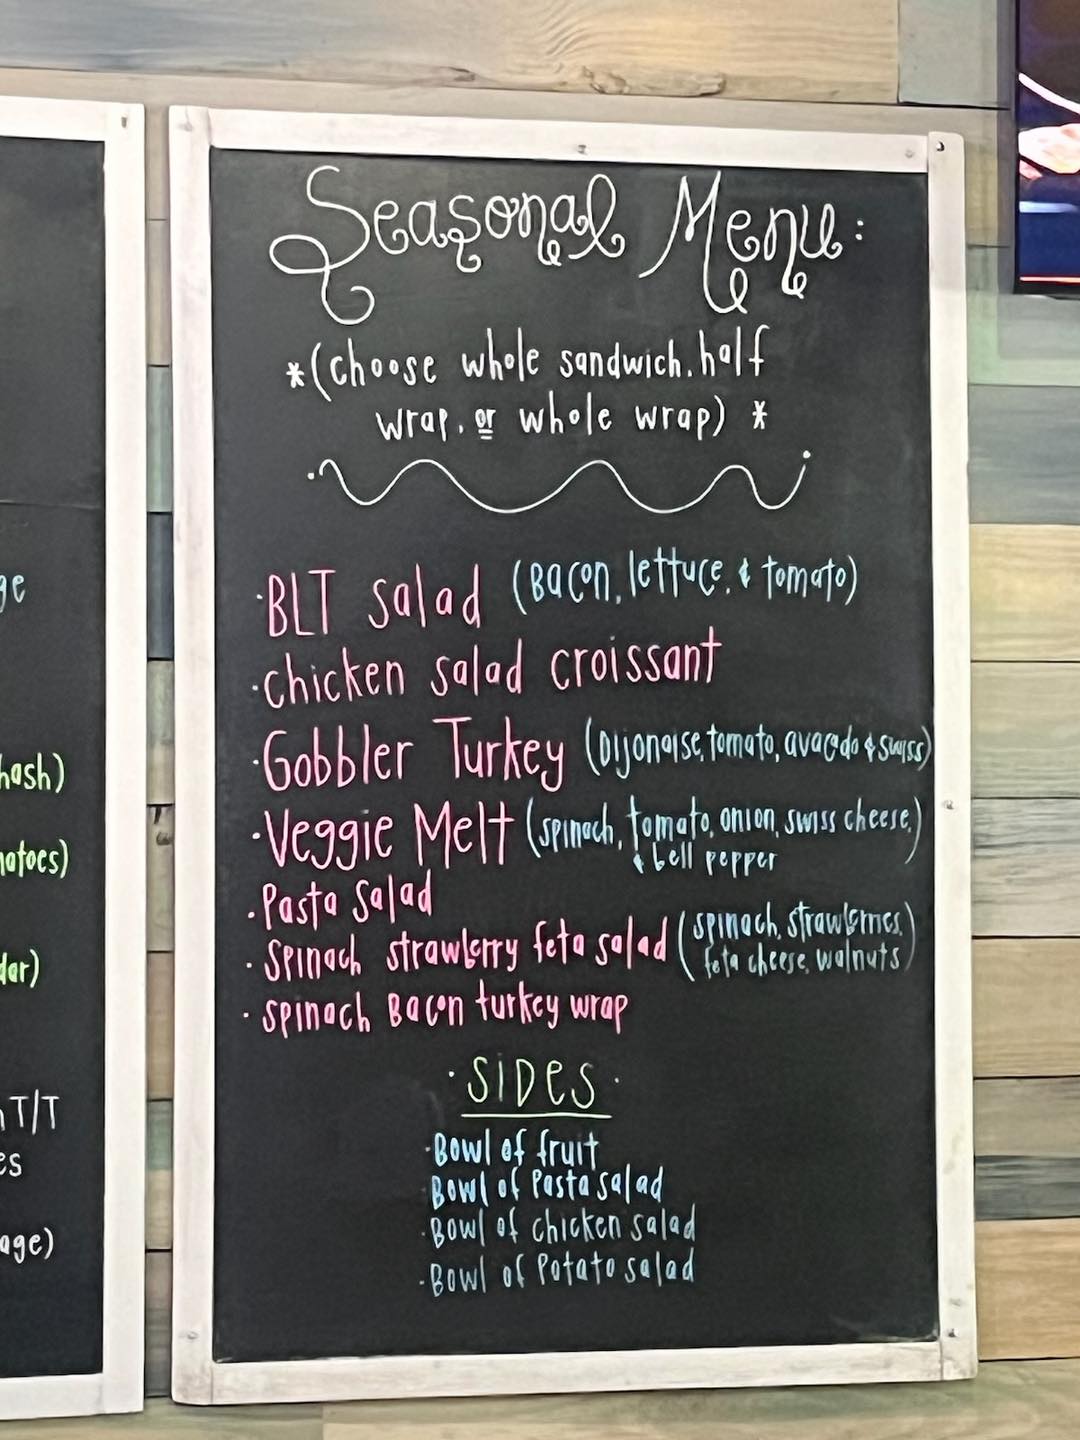 Seasonal Menu:
*(choose whole sandwich, half
wrap, or whole wrap) *
·BLT salad (Bacon, lettuce, & tomato)
·chicken salad croissant
·Gobbler Turkey (Dijonaise, tomato, avacado & swiss)
·Veggie Melt (spinach, tomato, onion, swiss cheese,
& bell pepper)
·Pasta Salad
·Spinach strawberry feta salad (spinach, strawberries,
feta cheese, walnuts)
·spinach Bacon turkey wrap
·SIDES·
·Bowl of fruit
·Bowl of Pasta salad
·Bowl of chicken salad
·Bowl of Potato salad
ge
hash)
matoes)
dar)
T/T
es
age)